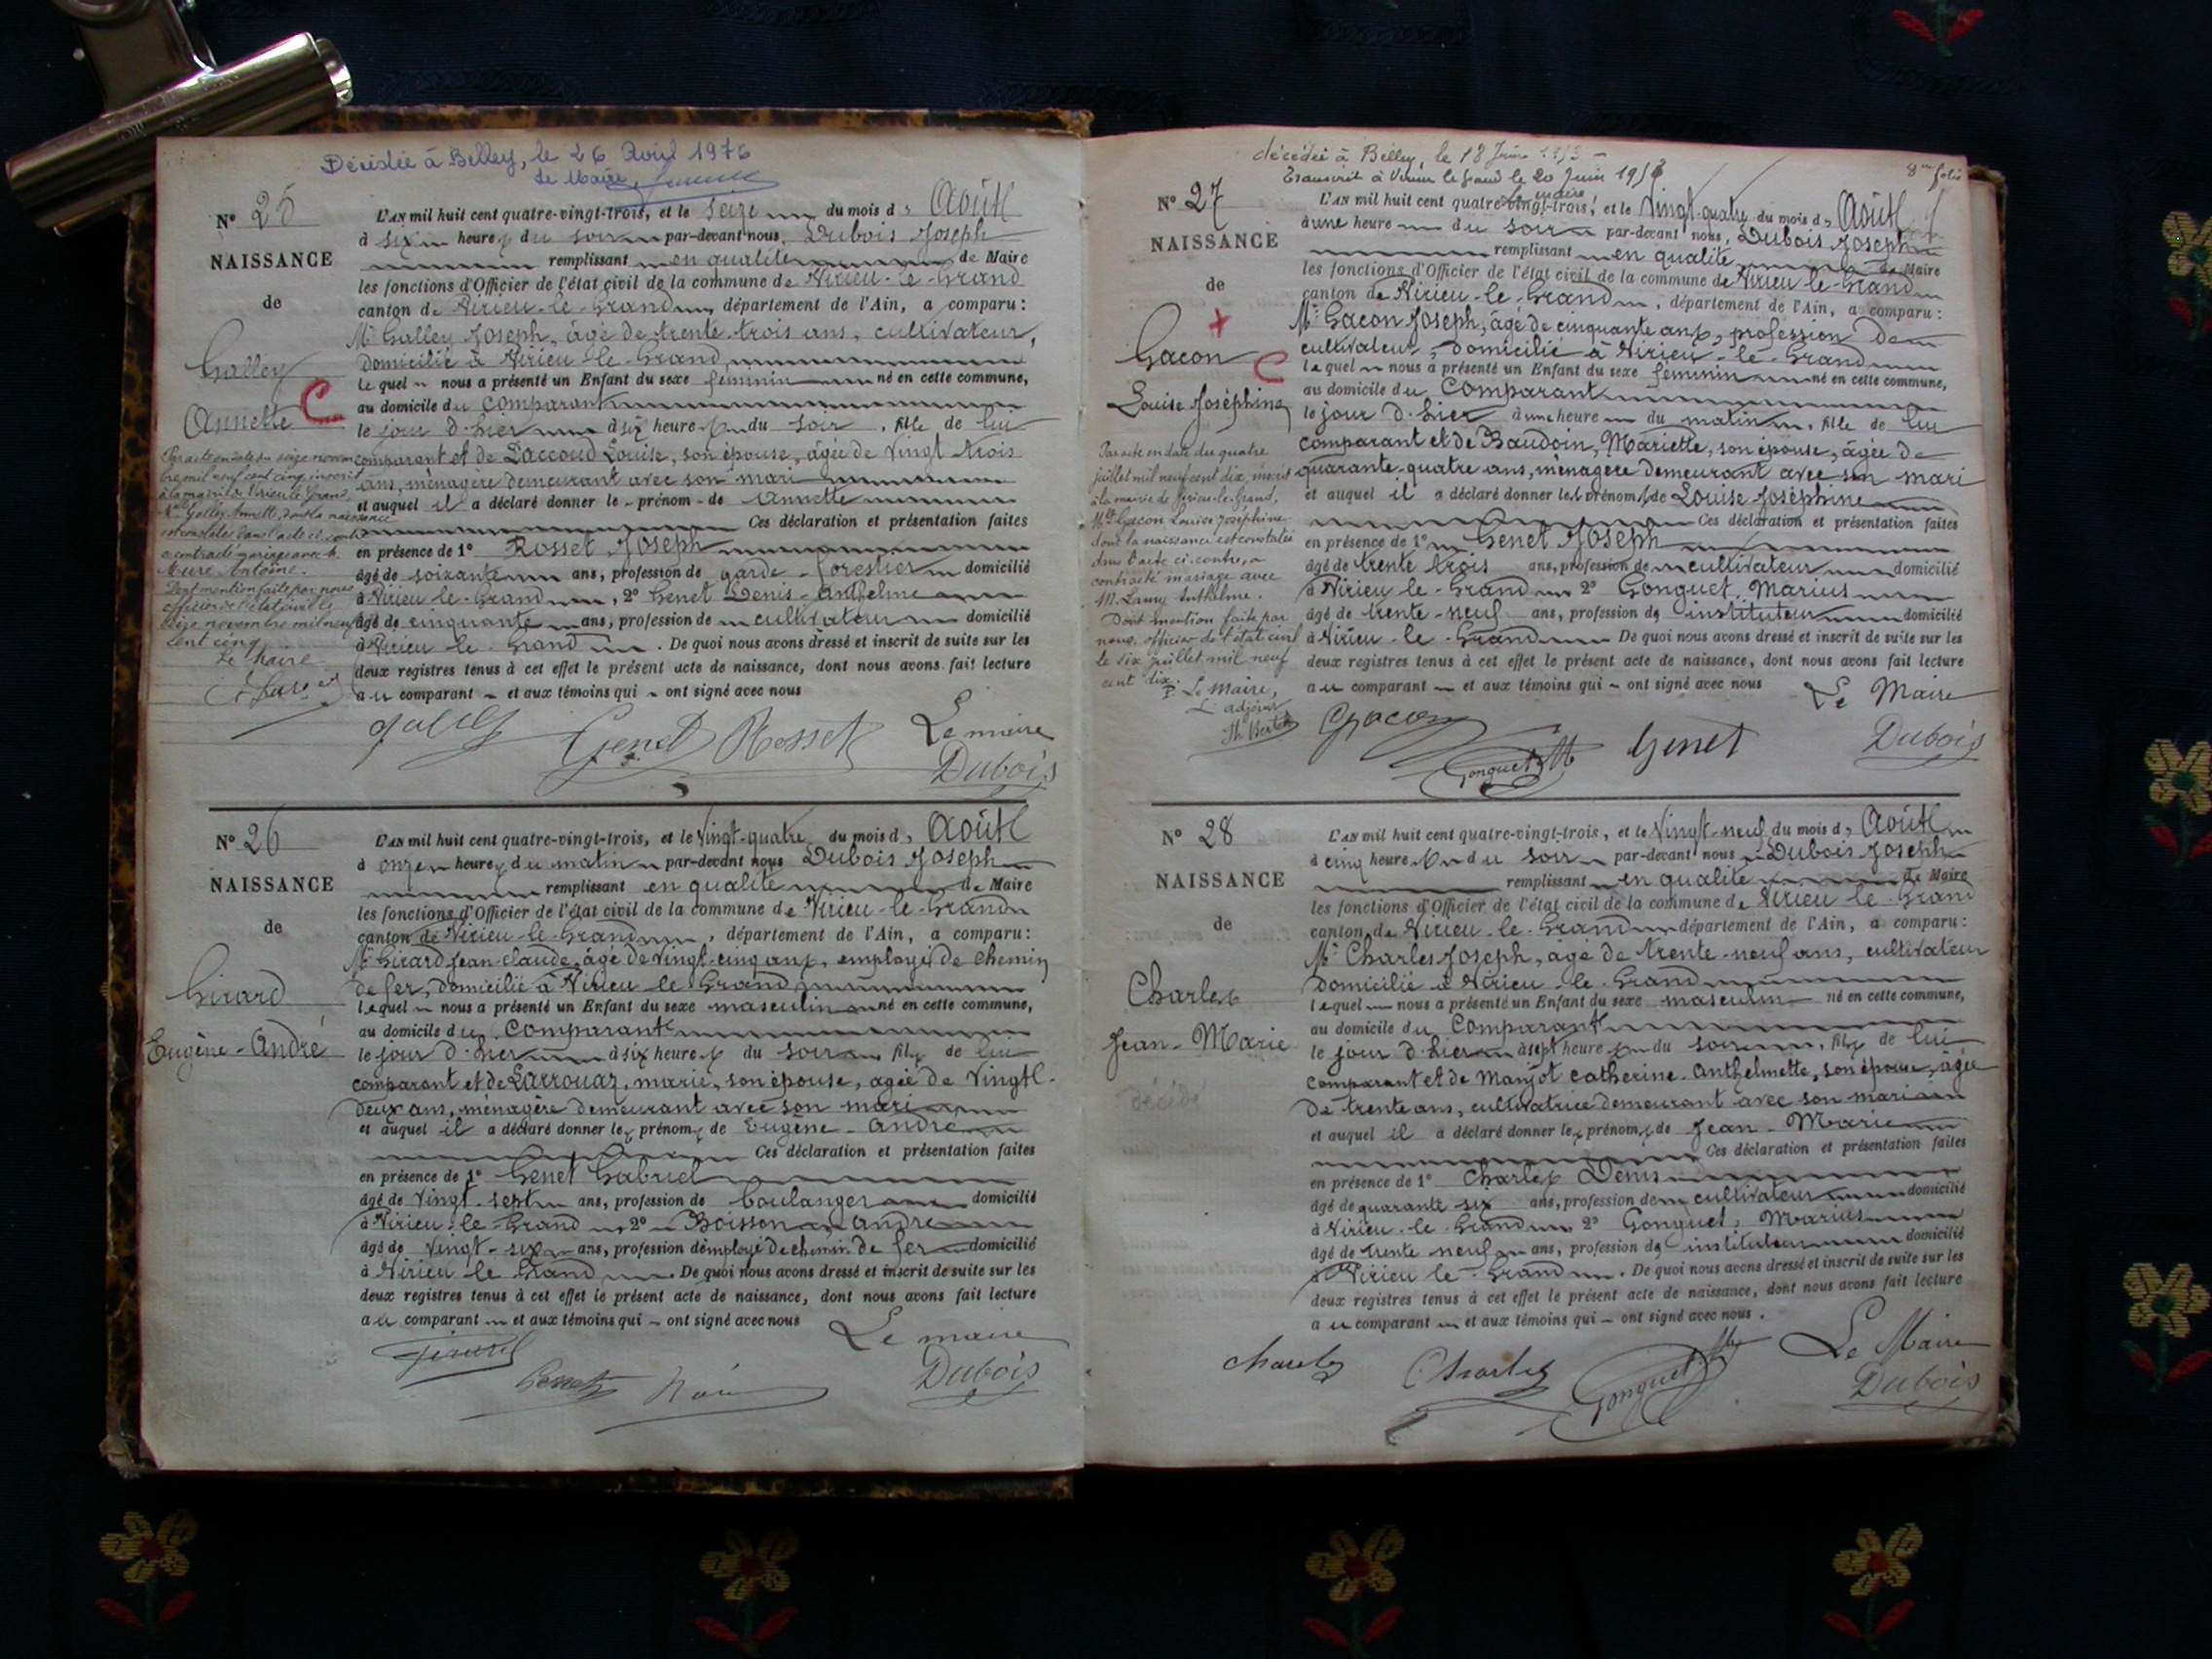 Décédée à Belley, le 26 Avril 1976
Le Maire
N° 25
NAISSANCE
de
Galley
Annette
C
L'AN mil huit cent quatre-vingt-trois, et le seize du mois d' Août
à six heures du soir par-devant nous, Dubois Joseph
remplissant en qualité de Maire
les fonctions d'Officier de l'état civil de la commune de Virieu-le-Grand
canton de Virieu-le-Grand, département de l'Ain, a comparu :
Mr Galley Joseph, âgé de trente-trois ans, cultivateur,
domicilié à Virieu-le-Grand
lequel nous a présenté un Enfant du sexe féminin né en cette commune,
au domicile du Comparant
le jour d'hier à six heures du soir, fille de lui
comparant et de Laccoud Louise, son épouse, âgée de Vingt trois
ans, ménagère demeurant avec son mari
et auquel il a déclaré donner le prénom de Annette
Ces déclaration et présentation faites
en présence de 1° Rosset Joseph
âgé de soixante ans, profession de garde-forestier domicilié
à Virieu-le-Grand, 2° Genet Denis-Anthelme
âgé de cinquante ans, profession de cultivateur domicilié
à Virieu le Grand. De quoi nous avons dressé et inscrit de suite sur les
deux registres tenus à cet effet le présent acte de naissance, dont nous avons fait lecture
au comparant et aux témoins qui ont signé avec nous
Par acte en date du seize novem
bre mil neuf cent cinq, inscrit
à la mairie de Virieu le Grand,
Mlle Galley Annette, dont la naissance
est constatée dans l'acte ci-contre
a contracté mariage avec M.
Mure Antoine.
Dont mention faite par nous
officier de l'état civil le
seize novembre mil neuf
cent cinq
Le Maire
Galley Genet Rosset Le maire
Dubois
N° 26
NAISSANCE
de
Girard
Eugène-André
L'AN mil huit cent quatre-vingt-trois, et le Vingt-quatre du mois d' Août
à onze heures du matin par-devant nous Dubois Joseph
remplissant en qualité de Maire
les fonctions d'Officier de l'état civil de la commune de Virieu-le-Grand
canton de Virieu-le-Grand, département de l'Ain, a comparu :
Mr Girard Jean-claude, âgé de Vingt-cinq ans, employé de chemin
de fer, domicilié à Virieu le Grand
lequel nous a présenté un Enfant du sexe masculin né en cette commune,
au domicile du Comparant
le jour d'hier à six heures du soir, fils de lui
comparant et de Larrouaz, marie, son épouse, agée de Vingt-
deux ans, ménagère demeurant avec son mari
et auquel il a déclaré donner les prénoms de Eugène-André
Ces déclaration et présentation faites
en présence de 1° Genet Gabriel
âgé de Vingt-sept ans, profession de boulanger domicilié
à Virieu-le-Grand, 2° Boisson André
âgé de Vingt-six ans, profession d'employé de chemin de fer domicilié
à Virieu le Grand. De quoi nous avons dressé et inscrit de suite sur les
deux registres tenus à cet effet le présent acte de naissance, dont nous avons fait lecture
au comparant et aux témoins qui ont signé avec nous
Girard Genet Le maire
Dubois
décédée à Belley, le 18 Juin
Transcrit à Virieu le Grand le 20 Juin 1953
Le maire
8me folio
N° 27
NAISSANCE
de
Gacon
Louise Joséphine
C
L'AN mil huit cent quatre-vingt-trois, et le Vingt-quatre du mois d' Août
à une heure du soir par-devant nous, Dubois Joseph
remplissant en qualité de Maire
les fonctions d'Officier de l'état civil de la commune de Virieu-le-Grand
canton de Virieu-le-Grand, département de l'Ain, a comparu :
Mr Gacon Joseph, âgé de cinquante ans, profession de
cultivateur, domicilié à Virieu-le-Grand
lequel nous a présenté un Enfant du sexe féminin né en cette commune,
au domicile du Comparant
le jour d'hier à une heure du matin, fille de lui
comparant et de Baudoin, Mariette, son épouse, âgée de
quarante-quatre ans, ménagère demeurant avec son mari
et auquel il a déclaré donner les prénoms de Louise Joséphine
Ces déclaration et présentation faites
en présence de 1° Genet Joseph
âgé de trente trois ans, profession de cultivateur domicilié
à Virieu-le-Grand 2° Gonguet, Marius
âgé de trente-neuf ans, profession de instituteur domicilié
à Virieu-le-Grand De quoi nous avons dressé et inscrit de suite sur les
deux registres tenus à cet effet le présent acte de naissance, dont nous avons fait lecture
au comparant et aux témoins qui ont signé avec nous
Par acte en date du quatre
juillet mil neuf cent dix, inscrit
à la mairie de Virieu-le-Grand,
Mlle Gacon Louise Joséphine
dont la naissance est constatée
dans l'acte ci-contre, a
contracté mariage avec
M. Lamy Anthelme.
Dont mention faite par
nous, officier de l'état civil
le six juillet mil neuf
cent dix.
P. Le Maire,
L'adjoint
Gacon Gonguet M Genet Le Maire
Dubois
N° 28
NAISSANCE
de
Charles
Jean-Marie
décédé
L'AN mil huit cent quatre-vingt-trois, et le Vingt-neuf du mois d' Août
à cinq heures du soir par-devant nous Dubois Joseph
remplissant en qualité de Maire
les fonctions d'Officier de l'état civil de la commune de Virieu le Grand
canton de Virieu-le-Grand département de l'Ain, a comparu :
Mr Charles Joseph, âgé de trente-neuf ans, cultivateur
domicilié à Virieu-le-Grand
lequel nous a présenté un Enfant du sexe masculin né en cette commune,
au domicile du Comparant
le jour d'hier à sept heures du soir, fils de lui
comparant et de Manjot catherine-Anthelmette, son épouse, âgée
de trente ans, cultivatrice demeurant avec son mari
et auquel il a déclaré donner les prénoms de Jean-Marie
Ces déclaration et présentation faites
en présence de 1° Charles Denis
âgé de quarante six ans, profession de cultivateur domicilié
à Virieu-le-Grand 2° Gonguet, Marius
âgé de trente neuf ans, profession de instituteur domicilié
à Virieu le-Grand. De quoi nous avons dressé et inscrit de suite sur les
deux registres tenus à cet effet le présent acte de naissance, dont nous avons fait lecture
au comparant et aux témoins qui ont signé avec nous.
Charles Charles Gonguet Le Maire
Dubois